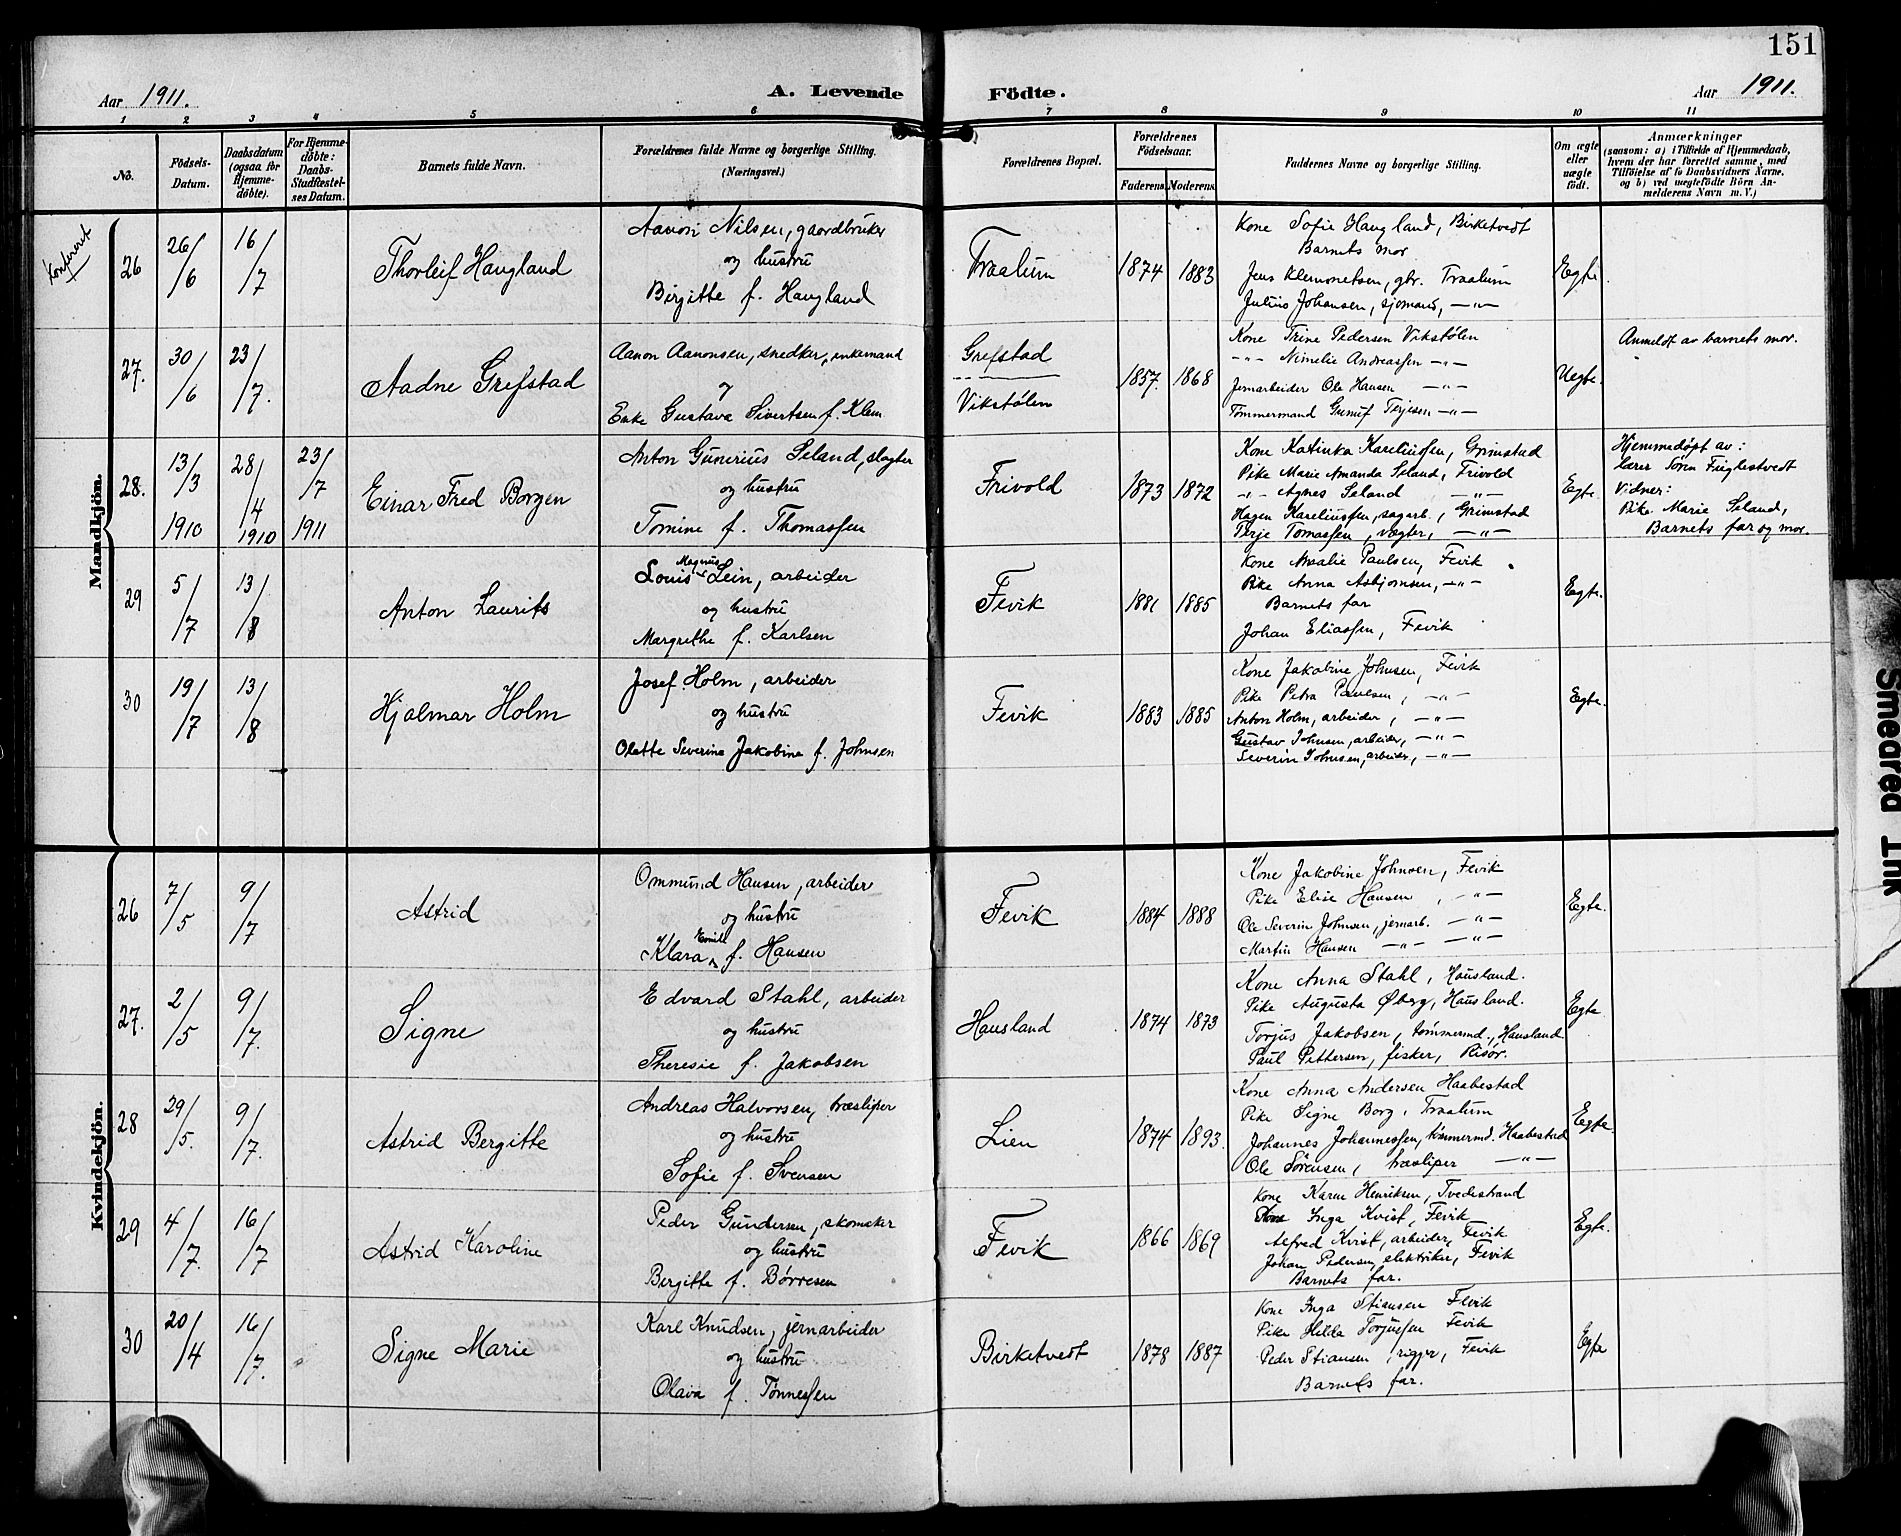 151
Aar 1911. A. Levende Födte. Aar 1911.
1 2 3 4 5 6 7 8 9 10 11
No.
Födsels-Datum.
Daabsdatum (ogsaa för Hjemmedöbte).
For Hjemmedöbte: Daabs-Stadfæstelses Datum.
Barnets fulde Navn.
Forældrenes fulde Navne og borgerlige Stilling.
(Næringsvei.)
Forældrenes Bopæl.
Forældrenes Födselsaar.
Faderens. Moderens.
Faddernes Navne og borgerlige Stilling.
Om ægte eller uægte födt.
Anmærkninger
(saasom: a) i Tilfælde af Hjemmedaab,
hvem der har forrettet samme, med
Tilföielse af to Daabsvidners Navne,
og b) ved uægtefödte Börn Anmelderens Navn m. V.)
Konfereret
Mandkjön.
26 26/6 16/7 Thorleif Haugland
Aanon Nilsen, gaardbruker
og hustru
Birgitte f. Haugland
Traalum 1874 1883
Kone Sofie Haugland, Birketvedt
Barnets mor
Jens Klemmetsen, gbr. Traalum
Julius Johansen, sjømand, -"-
Egte.
27. 30/6 23/7. Aadne Grefstad
Aanon Aanonsen, snedker, enkemand
og
Enke Gustava Sivertsen f. Klem
Grefstad
Vikstølen
1857. 1868
Kone Trine Pedersen Vikstølen
-"- Nimelie Andreassen -"-
Jernarbeider Ole Hansen -"-
Tømmermand Gunuf Terjesen -"-
Uegte.
Anmeldt av barnets mor.
28. 13/3 1910 28/4 1910 23/7 1911 Einar Fred Borgen
Anton Gunerius Seland, slagter
og hustru
Tomine f. Thomassen
Frivold 1873 1872
Kone Katinka Kareliussen, Grimstad
Pike Marie Amanda Seland, Frivold
-"- Agnes Seland -"-
Hagen Kareliussen, sagarb., Grimstad
Terje Tomassen, vægter, -"-
Egte.
Hjemmedøpt av:
lærer Tørn Fuglestvedt
Vidner:
Pike Marie Seland,
Barnets far og mor.
29 5/7 13/8 Anton Laurits
Louis Magnus Lein, arbeider
og hustru
Margrethe f. Karlsen
Fevik 1881 1885
Kone Amalie Paulsen, Fevik
Pike Anna Asbjørnsen, -"-
Barnets far
Johan Eliassen, Fevik
Egte.
30 19/7 13/8 Hjalmar Holm
Josef Holm, arbeider
og hustru
Olette Severine Jakobine f. Johnsen
Fevik 1883 1885
Kone Jakobine Johnsen, Fevik
Pike Petra Paulsen, -"-
Anton Holm, arbeider, -"-
Gustav Johnsen, arbeider, -"-
Severin Johnsen, arbeider, -"-
Egte.
Kvindekjön.
26 7/5 9/7 Astrid
Ommund Hansen, arbeider
og hustru
Klara Emilie f. Hansen
Fevik 1884 1888
Kone Jakobine Johnsen, Fevik
Pike Elise Hansen, -"-
Ole Severin Johnsen, jernarb. -"-
Martin Hansen -"- -"-
Egte.
27. 2/5 9/7. Signe
Edvard Stahl, arbeider
og hustru
Theresie f. Jakobsen
Hausland 1874 1873
Kone Anna Stahl, Hausland.
Pike Augusta Øberg, Hausland.
Torjus Jakobsen, tømmermd., Hausland
Paul Pettersen, fisker, Risør.
Egte
28 29/5. 9/7. Astrid Bergitte
Andreas Halvorsen, træsliper
og hustru
Sofie f. Svensen
Lien 1874 1893.
Kone Anna Andersen Haabestad
Pike Signe Borg, Traalum
Johannes Johannessen, tømmermd. Haabestad
Ole Sørensen, træsliper -"-
Egte.
29 4/7. 16/7 Astrid Karoline
Peder Gundersen, skomaker
og hustru
Bergitte f. Børresen
Fevik 1866 1869
Kone Karen Henriksen, Tvedestrand
Kone Inga Kvist, Fevik
Alfred Kvist, arbeider, Fevik
Johan Pedersen, elektriker, Fevik
Barnets far.
Egte.
30 20/4 16/7. Signe Marie
Karl Knudsen, jernarbeider
og hustru
Olava f. Tønnessen
Birketvedt 1878 1887
Kone Inga Stiansen Fevik
Pike Hilda Torjussen Fevik
Peder Stiansen, rigger, Fevik
Barnets far.
Egte
Smeared Ink